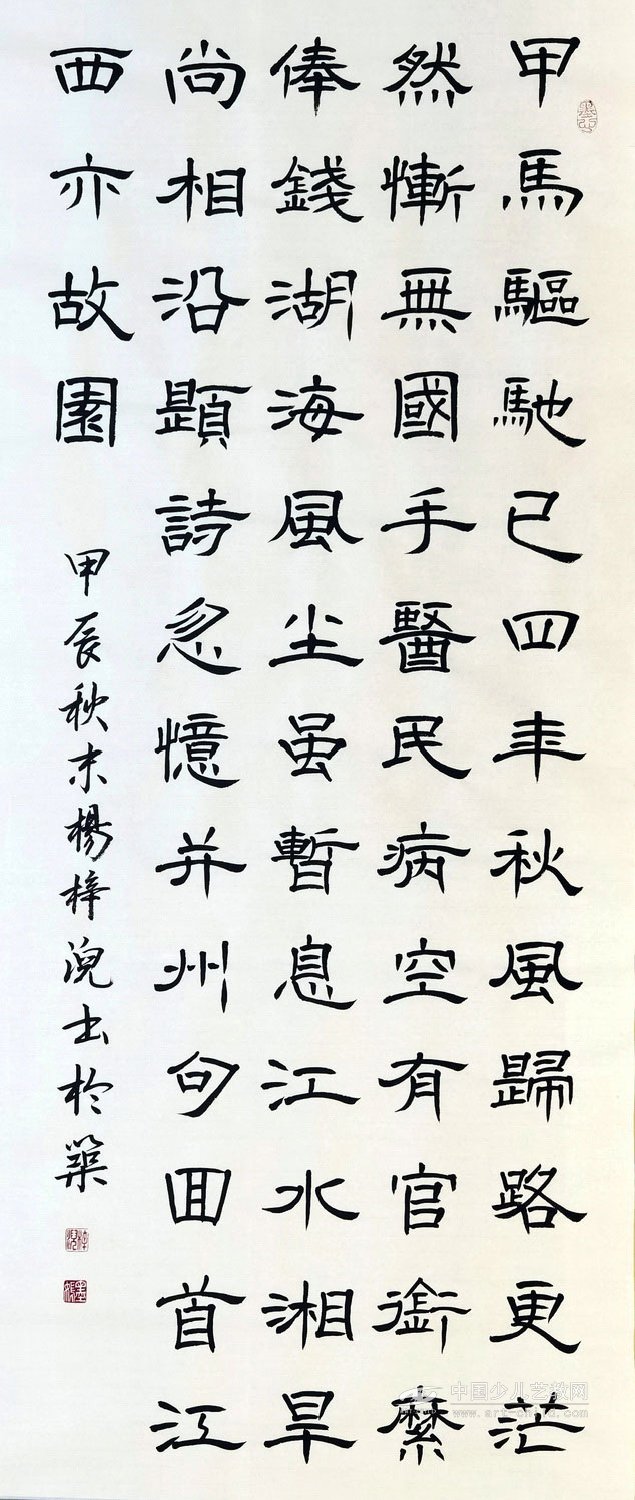 甲馬驅馳已四年秋風歸路更茫
然慚無國手醫民病空有官銜縻
俸錢湖海風尘虽暫息江水湘旱
尚相沿題詩忽憶并州句囬首江
西亦故園
甲辰秋末楊梓涗书於築
中国少儿艺教网
www.art-child.com